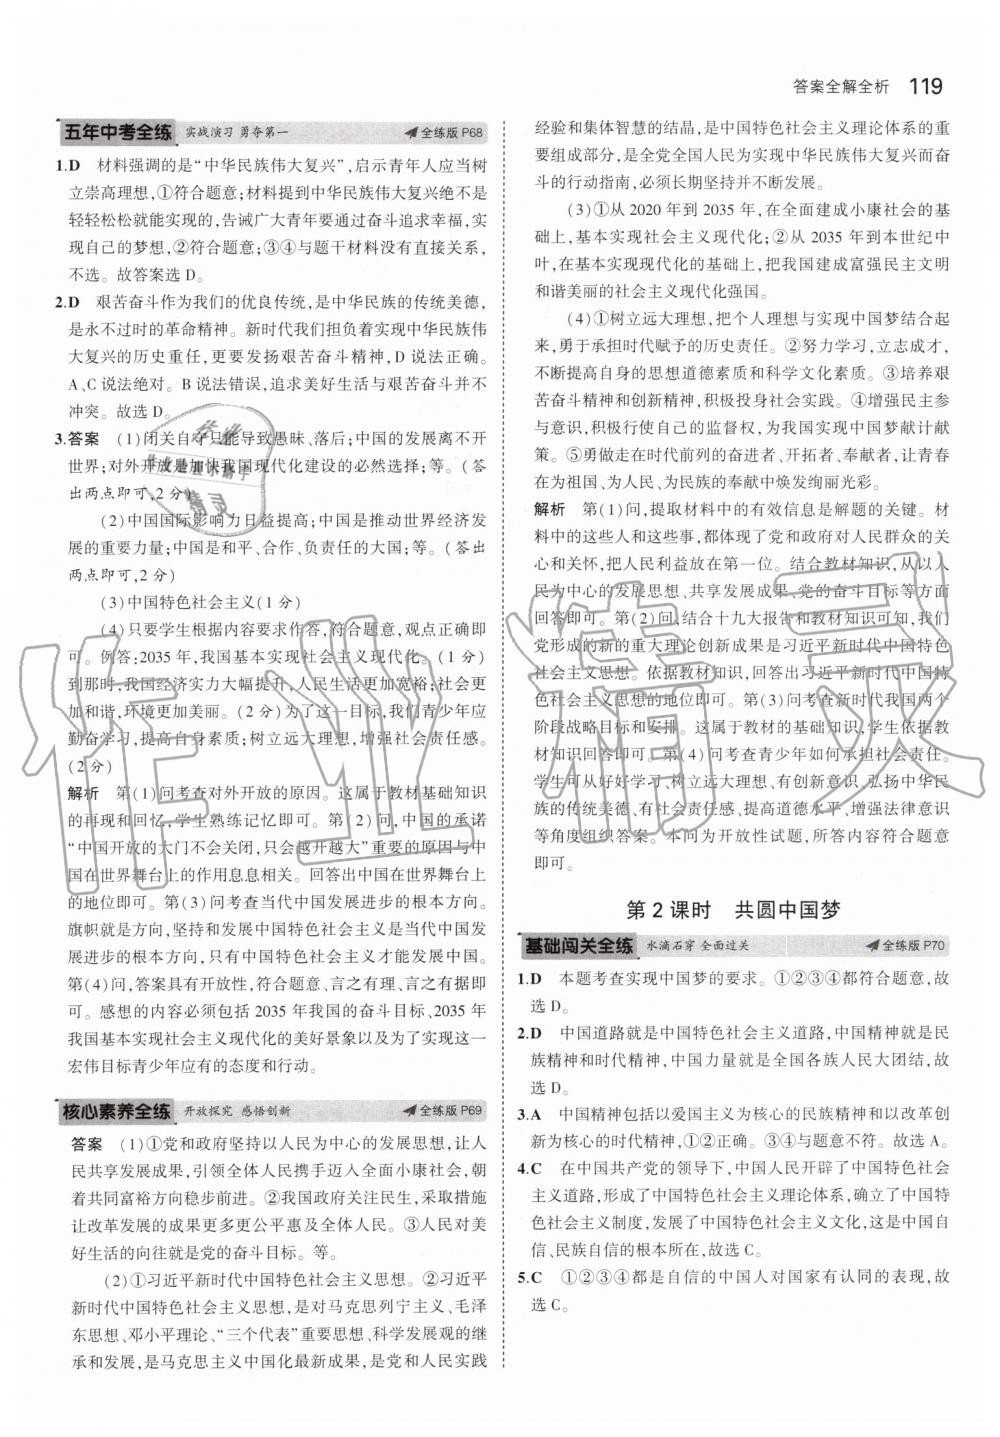 答案全解全析 119
五年中考全练 实战演习 勇夺第一 全练版 P68
1.D 材料强调的是“中华民族伟大复兴”,启示青年人应当树
立崇高理想,①符合题意;材料提到中华民族伟大复兴绝不是
轻轻松松就能实现的,告诫广大青年要通过奋斗追求幸福,实
现自己的梦想,②符合题意;③④与题干材料没有直接关系,
不选。故答案选 D。
2.D 艰苦奋斗作为我们的优良传统,是中华民族的传统美德,
是永不过时的革命精神。新时代我们担负着实现中华民族伟
大复兴的历史重任,更要发扬艰苦奋斗精神,D 说法正确。
A、C 说法绝对。B 说法错误,追求美好生活与艰苦奋斗并不
冲突。故选 D。
3.答案 (1)闭关自守只能导致愚昧、落后;中国的发展离不开
世界;对外开放是加快我国现代化建设的必然选择;等。(答
出两点即可,2 分)
(2)中国国际影响力日益提高;中国是推动世界经济发
展的重要力量;中国是和平、合作、负责任的大国;等。(答出
两点即可,2 分)
(3)中国特色社会主义(1 分)
(4)只要学生根据内容要求作答,符合题意,观点正确即
可。例答:2035 年,我国基本实现社会主义现代化。(1 分)
到那时,我国经济实力大幅提升,人民生活更加宽裕;社会更
加和谐,环境更加美丽。(2 分)为了这一目标,我们青少年应
勤奋学习,提高自身素质;树立远大理想,增强社会责任感。
(2 分)
解析 第(1)问考查对外开放的原因。这属于教材基础知识
的再现和回忆,学生熟练记忆即可。第(2)问,中国的承诺
“中国开放的大门不会关闭,只会越开越大”重要的原因与中
国在世界舞台上的作用息息相关。回答出中国在世界舞台上
的地位即可。第(3)问考查当代中国发展进步的根本方向。
旗帜就是方向,坚持和发展中国特色社会主义是当代中国发
展进步的根本方向,只有中国特色社会主义才能发展中国。
第(4)问,答案具有开放性,符合题意、言之有理、言之有据即
可。感想的内容必须包括 2035 年我国的奋斗目标、2035 年
我国基本实现社会主义现代化的美好景象以及为了实现这一
宏伟目标青少年应有的态度和行动。
核心素养全练 开放探究 感悟创新 全练版 P69
答案 (1)①党和政府坚持以人民为中心的发展思想,让人
民共享发展成果,引领全体人民携手迈入全面小康社会,朝
着共同富裕方向稳步前进。②我国政府关注民生,采取措施
让改革发展的成果更多更公平惠及全体人民。③人民对美
好生活的向往就是党的奋斗目标。等。
(2)①习近平新时代中国特色社会主义思想。②习近平
新时代中国特色社会主义思想,是对马克思列宁主义、毛泽
东思想、邓小平理论、“三个代表”重要思想、科学发展观的继
承和发展,是马克思主义中国化最新成果,是党和人民实践
经验和集体智慧的结晶,是中国特色社会主义理论体系的重
要组成部分,是全党全国人民为实现中华民族伟大复兴而奋
斗的行动指南,必须长期坚持并不断发展。
(3)①从 2020 年到 2035 年,在全面建成小康社会的基
础上,基本实现社会主义现代化;②从 2035 年到本世纪中
叶,在基本实现现代化的基础上,把我国建成富强民主文明
和谐美丽的社会主义现代化强国。
(4)①树立远大理想,把个人理想与实现中国梦结合起
来,勇于承担时代赋予的历史责任。②努力学习,立志成才,
不断提高自身的思想道德素质和科学文化素质。③培养艰
苦奋斗精神和创新精神,积极投身社会实践。④增强民主参
与意识,积极行使公民的监督权,为我国实现中国梦献计献
策。⑤勇做走在时代前列的奋进者、开拓者、奉献者,让青春
在为祖国、为人民、为民族的奉献中焕发绚丽光彩。
解析 第(1)问,提取材料中的有效信息是解题的关键。材
料中的这些人和这些事,都体现了党和政府对人民群众的关
心和关怀,把人民利益放在第一位。结合教材知识,从以人
民为中心的发展思想、共享发展成果、党的奋斗目标等方面
回答即可。第(2)问,结合十九大报告和教材知识可知,我们
党形成的新的重大理论创新成果是习近平新时代中国特色
社会主义思想。依据教材知识,回答出习近平新时代中国特
色社会主义思想的地位即可。第(3)问考查新时代我国两个
阶段战略目标和安排。这属于教材的基础知识,学生依据教
材知识回答即可。第(4)问考查青少年如何承担社会责任。
学生可从好好学习、树立远大理想、有创新意识、弘扬中华民
族的传统美德、有社会责任感、提高道德水平、增强法律意识
等角度组织答案。本问为开放性试题,所答内容符合题意
即可。
第 2 课时 共圆中国梦
基础闯关全练 水滴石穿 全面过关 全练版 P70
1.D 本题考查实现中国梦的要求。①②③④都符合题意,故
选 D。
2.D 中国道路就是中国特色社会主义道路,中国精神就是民
族精神和时代精神,中国力量就是全国各族人民大团结,故
选 D。
3.A 中国精神包括以爱国主义为核心的民族精神和以改革创
新为核心的时代精神,①②正确。③④与题意不符。故选 A。
4.C 在中国共产党的领导下,中国人民开辟了中国特色社会
主义道路,形成了中国特色社会主义理论体系,确立了中国特
色社会主义制度,发展了中国特色社会主义文化,这是中国自
信、民族自信的根本所在,故选 C。
5.C ①②③④都是自信的中国人对国家有认同的表现,故
选 C。
作业精灵